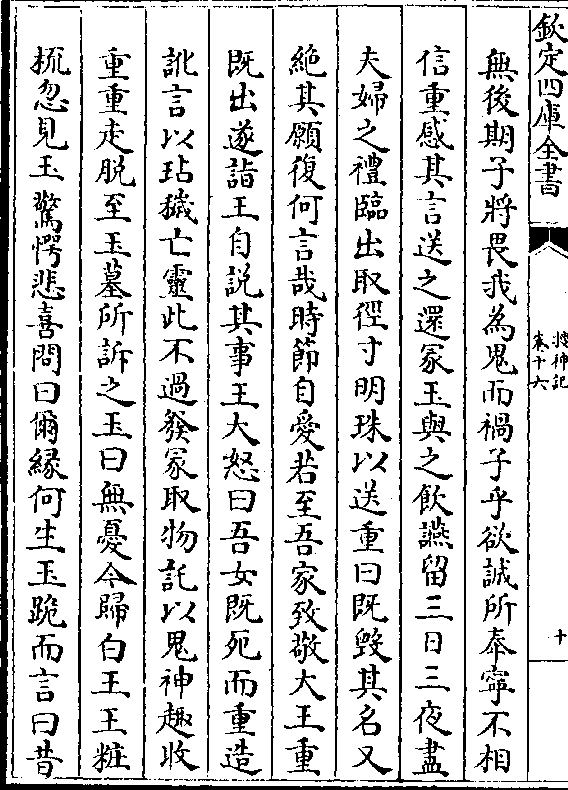 欽定四庫全書
搜神記
卷十六
十
無後期子將畏我為鬼而禍子乎欲誠所奉寧不相
信重感其言送之還冢玉與之飲讌留三日三夜盡
夫婦之禮臨出取徑寸明珠以送重曰既毁其名又
絶其願復何言哉時節自愛若至吾家致敬大王重
既出遂詣王自説其事王大怒曰吾女既死而重造
訛言以玷穢亡靈此不過發冢取物託以鬼神趣收
重重走脱至玉墓所訴之玉曰無憂今歸白王王粧
梳忽見玉驚愕悲喜問曰爾緣何生玉跪而言曰昔